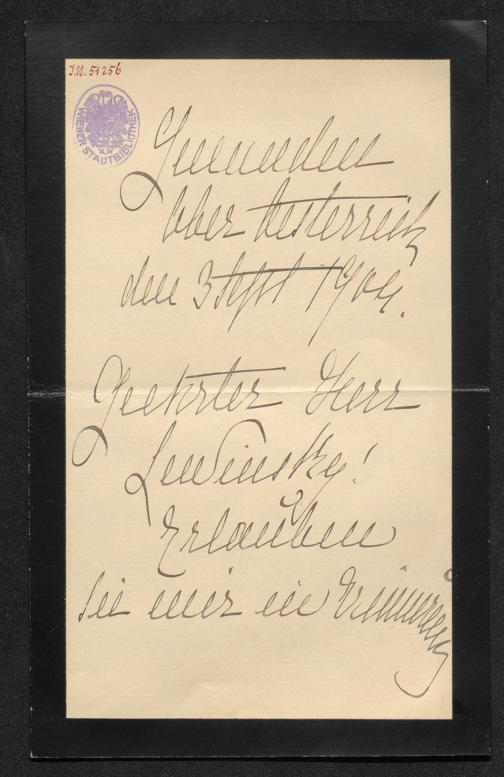 J.N. 51256
WIENER STADTBIBLIOTHEK
Gmunden
Ober Oesterreich
den 3 Sept 1904.
Geehrter Herr
Lewinsky!
Erlauben
Sie mir in Erinnerung